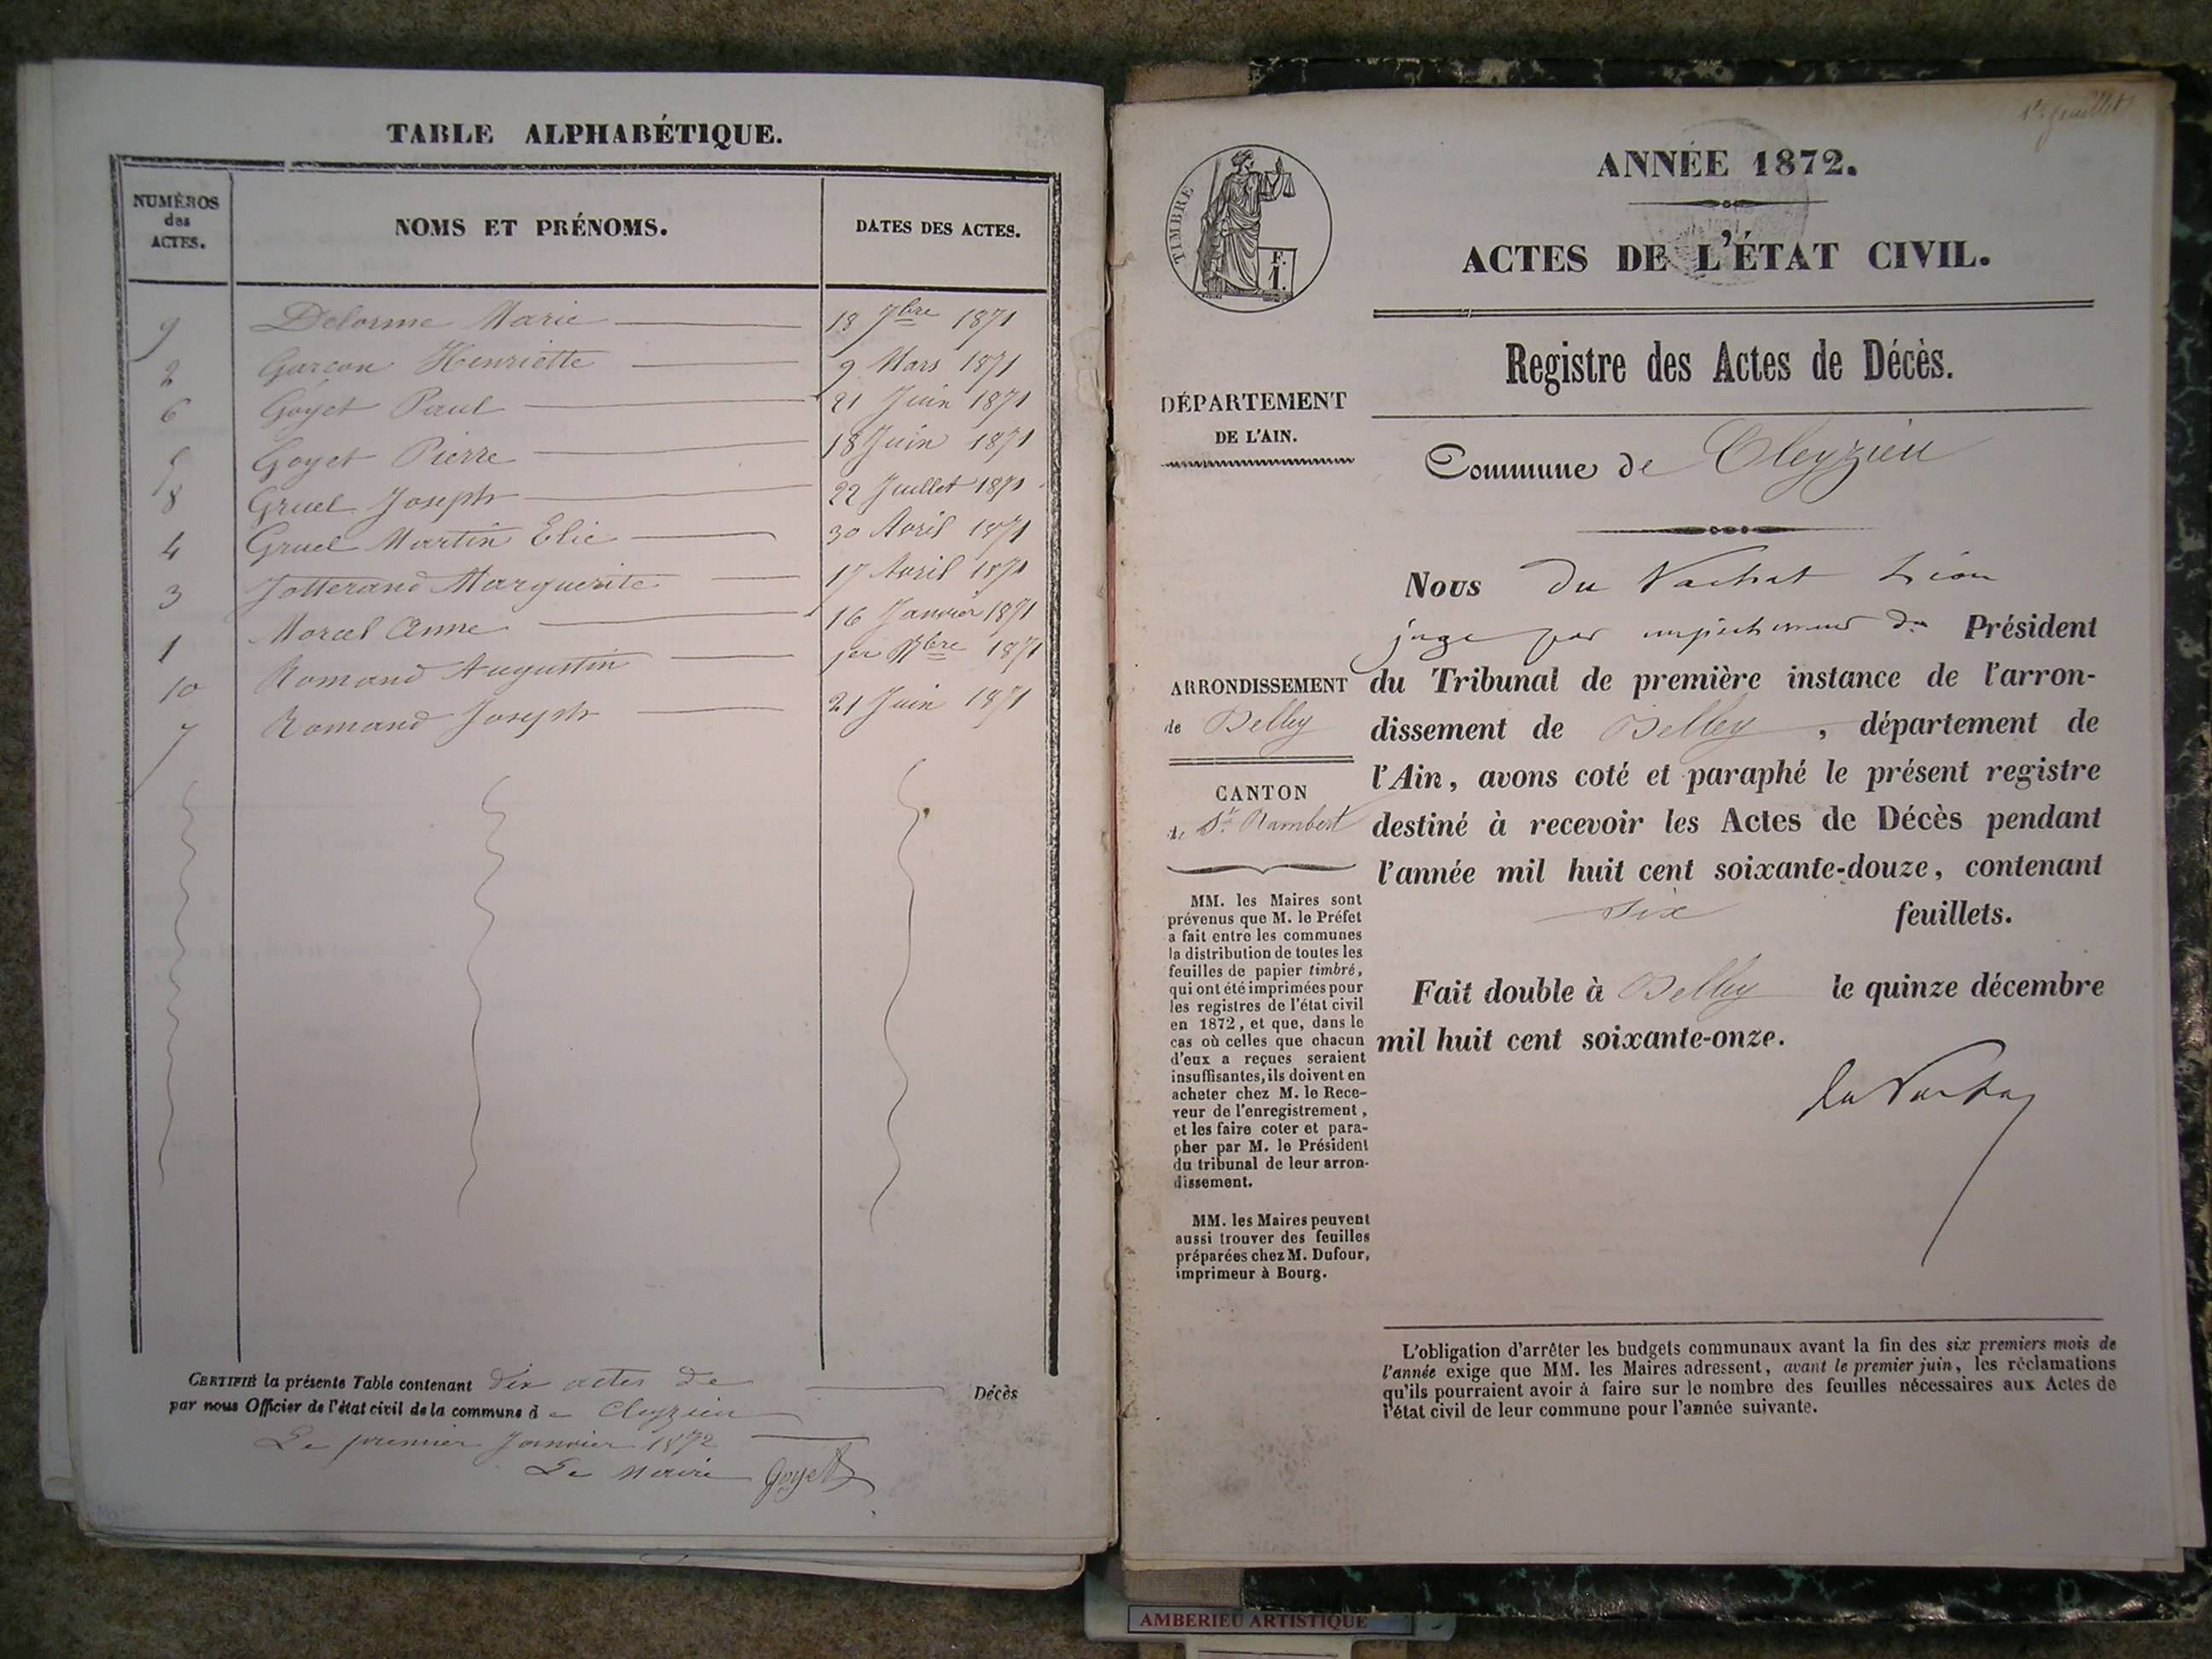 TABLE ALPHABÉTIQUE.
NUMÉROS des ACTES.
NOMS ET PRÉNOMS.
DATES DES ACTES.
9 Delorme Marie 18 7bre 1871
2 Garcon Henriette 9 Mars 1871
6 Goyet Paul 21 Juin 1871
5 Goyet Pierre 18 Juin 1871
8 Gruel Joseph 22 Juillet 1871
4 Gruel Martin Elie 30 Avril 1871
3 Jotterand Marguerite 17 Avril 1871
1 Morcel Anne 16 Janvier 1871
10 Romand Augustin 1er 1871
7 Romand Joseph 21 Juin 1871
CERTIFIÉ la présente Table contenant dix actes de Décès
par nous Officier de l'état civil de la commune d e Cleyzieu
Le premier Janvier 1872
Le Maire Goyet
1er feuillet
TIMBRE
F.
1.
ANNÉE 1872.
ACTES DE L'ÉTAT CIVIL.
Registre des Actes de Décès.
DÉPARTEMENT
DE L'AIN.
Commune de Cleyzieu
Nous Du Vachat Léon
juge par empechement du Président
du Tribunal de première instance de l'arron-
dissement de Belley, département de
l'Ain, avons coté et paraphé le présent registre
destiné à recevoir les Actes de Décès pendant
l'année mil huit cent soixante-douze, contenant
six feuillets.
Fait double à Belley le quinze décembre
mil huit cent soixante-onze.
du Vachat
ARRONDISSEMENT
de Belley
CANTON
de St. Rambert
MM. les Maires sont
prévenus que M. le Préfet
a fait entre les communes
la distribution de toutes les
feuilles de papier timbré,
qui ont été imprimées pour
les registres de l'état civil
en 1872, et que, dans le
cas où celles que chacun
d'eux a reçues seraient
insuffisantes, ils doivent en
acheter chez M. le Rece-
veur de l'enregistrement,
et les faire coter et para-
pher par M. le Président
du tribunal de leur arron-
dissement.
MM. les Maires peuvent
aussi trouver des feuilles
préparées chez M. Dufour,
imprimeur à Bourg.
L'obligation d'arrêter les budgets communaux avant la fin des six premiers mois de
l'année exige que MM. les Maires adressent, avant le premier juin, les réclamations
qu'ils pourraient avoir à faire sur le nombre des feuilles nécessaires aux Actes de
l'état civil de leur commune pour l'année suivante.
AMBERIEU ARTISTIQUE